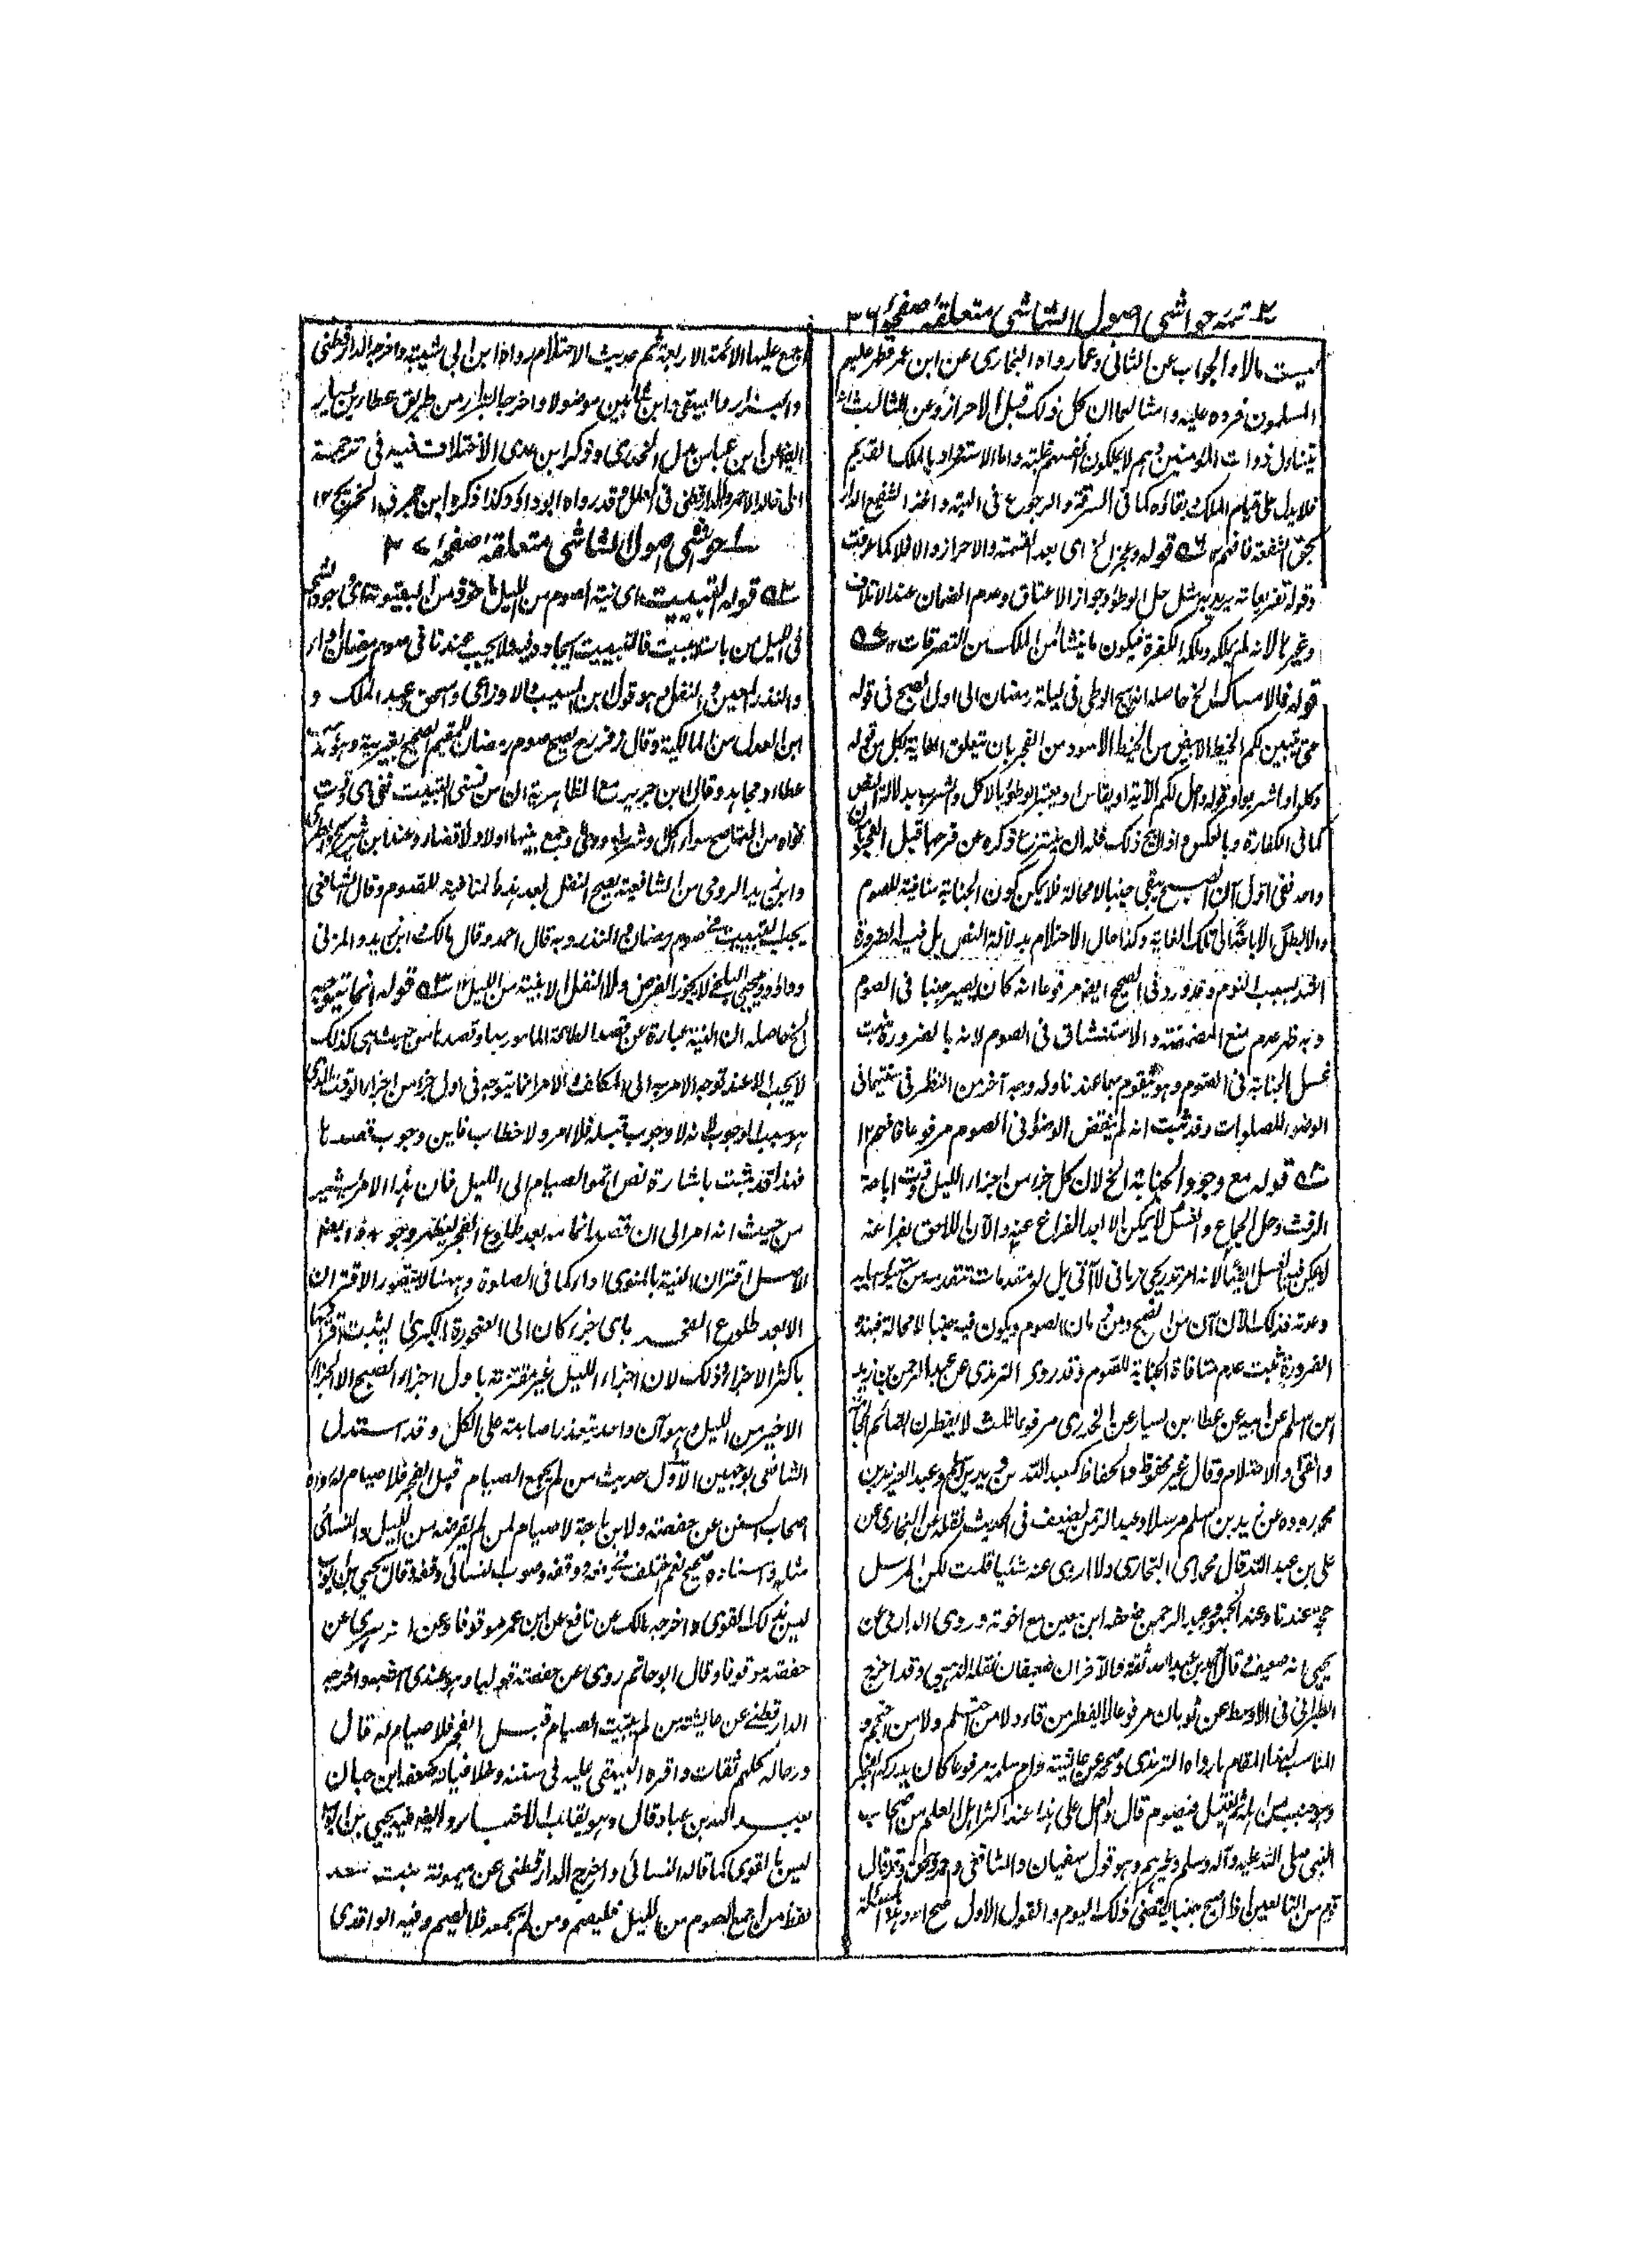 تتمہ حواشی اصول الشاشی متعلقہ صفحہ ٣٦
ليست مالا والجواب عن الثانى وعما رواه البخارى عن ابن عمر فظهر عليهم
المسلمون فردہ عليه وامثالهما ان كل ذلك قبل الاحراز وعن الثالث انها
تتناول ذوات المؤمنين وهم لا يملكون انفسهم غلبة واما الاسترداد بالملك القديم
فلا يدل على قيام الملك وبقائه كما فى السرقة والرجوع فى الهبة واخذ الشفيع الدار
بحق الشفعة فافهم ١٢ قوله ويجزالخ اى بعد القسمة والاحراز والا فلا كما عرفت
وقوله تفريعاته يريد به مثل حل الوطؤ وجواز الاعتاق وعدم الضمان عند الاتلاف
وغيرها لانه لم يملكه وملكه الكفرة فيكون ما ينشأ من الملك من التصرفات ١٢
قوله فالامساك الخ حاصله انه ابيح الوطى فى ليلة رمضان الى اول الصبح فى قوله
حتى يتبين لكم الخيط الابيض من الخيط الاسود من الفجر بان تتعلق الغاية بكل من قوله
وكلوا واشربوا وقوله واحل لكم الآية او يقاس او يعتبر الوطؤ بالاكل والشرب بدلالة النص
كما فى الكفارة وبالعكس واذا ابيح ذلك فله ان ينتزع ذكره عن فرجها قبل الفجر بآن
واحد ففى اول آن الصبح يبقى جنبا لا محالة فلا يمكن كون الجنابة منافية للصوم
والا لبطل الاباحة الى تلك الغاية وكذا حال الاحتلام بدلالة النص بل فيه الضرورة
اشد بسبب النوم وقد ورد فى الصحيح ايضا مرفوعا انه كان يصير جنبا فى الصوم
وبه ظهر عدم منع المضمضة والاستنشاق فى الصوم لانه بالضرورة ثبت
غسل الجنابة فى الصوم وهو يتقوم بهما عندنا وله وجه آخر من النظر فى سنيتهما فى
الوضوء للصلوات وقد ثبت انه لم ينقض الوضوء فى الصوم مرفوعا فافهم ١٢
قوله مع وجود الجنابة الخ لان كل جزء من اجزاء الليل وقت اباحة
الرفث وحل الجماع والغسل لا يمكن الا بعد الفراغ عنه والآن اللاحق بفراغه
لا يمكن فيه الغسل ايضا لانه امر تدريجى زمانى لا آنى بل له مقدمات تتقدمه من تهيئة مائه
وعدته فذلك الآن آن من الصبح ومن زمان الصوم ويكون فيه جنبا لا محالة فبهذه
الضرورة ثبت عدم منافاة الجنابة للصوم وقد روى الترمذى عن عبد الرحمن بن زيد
ابن اسلم عن ابيه عن عطاء بن يسار عن الخدرى مرفوعا ثلث لا يفطرن الصائم الحجامة
والقئ والاحتلام وقال غير محفوظ والحفاظ كعبد الله بن زيد بن اسلم وعبد العزيز بن
محمد رووه عن زيد بن اسلم مرسلا وعبد الرحمن يضعف فى الحديث نقله عن البخارى عن
على بن عبد الله قال محمد اى البخارى ولا اروى عنه شيئا قلت لكن المرسل
حجة عندنا وعند الجمهور وعبد الرحمن ضعفه ابن معين مع اخوته وروى الدارمى عن
يحيى انه ضعيف قال احمد بن عبد الله ثقة والآخران ضعيفان نقله الذهبى وقد اخرج
الطبرانى فى الاوسط عن ثوبان مرفوعا لا يفطر من قاء ولا من احتلم ولا من احتجم و
المناسب لهذا المقام ما رواه الترمذى وصححه عن عائشة وام سلمة مرفوعا كان يدركه الفجر
وهو جنب من اهله ثم يغتسل فيصوم قال والعمل على هذا عند اكثر اهل العلم من اصحاب
النبى صلى الله عليه وآله وسلم وغيرهم وهو قول سفيان والشافعى واحمد واسحق وقد قال
قوم من التابعين اذا اصبح جنبا يقضى ذلك اليوم والقول الاول اصح
اجمع عليها الائمة الاربعة ثم حديث الاحتلام رواه ابن ابى شيبة واخرجه الدارقطنى
والبزار والبيهقى وابن موصولا واخرجه البزار من طريق عطاء بن يسار
ايضا عن ابن عباس بدل الخدرى وذكر ابن عدى الاختلاف فيه فى ترجمة
ابى خالد الاحمر والدارقطنى فى العلل وقد رواه ابو داؤد وكذا ذكره ابن حجر فى التخريج ١٢
حواشی اصول الشاشی متعلقہ صفحہ ٣٧
قوله التبييت اى نية الصوم من الليل
فى الليل من بات يبيت فالتبييت ايجاده فيه فلا يجب عندنا فى صوم رمضان اداء
والنذر المعين والنفل وهو قول ابن المسيب والاوزاعى واسحق وعبد الملك و
ابن المعدل من المالكية وقال زفر رح يصح صوم رمضان للمقيم الصحيح بغير نية وهو مذهب
عطاء ومجاهد وقال ابن جرير من الظاهرية ان من نسى التبييت ففى اى وقت
نواه من التاسع سواء اكل وشرب او وطى وجمع بينها اولا ولا قضاء وعند ابن شريح والطبرى
وابى زيد المروزى من الشافعية يصح النفل بعد هذه المنافية للصوم وقال الشافعى
يجب التبييت فى صوم رمضان والنذر وبه قال احمد وقال مالك وابو زيد والمزنى
وداود ويحيى البلخى لا يجوز الفرض ولا النفل الا بنية من الليل ١٢ قوله انما يتوجه
الخ حاصله ان النية عبارة عن قصد الطاعة المامور بها وقصدها من حيث هى كذلك
لا يجب الا عند توجه الامر به الى المكلف والامر انما يتوجه فى اول جزء من اجزاء الوقت الذى
هو سبب الوجوب لانه لا وجوب قبله فلا امر ولا خطاب فاين وجوب قصدها
فهذا قد ثبت باشارة نص اتموا الصيام الى الليل فان هذا الامر يشير
من حيث انه امر الى ان قصد اتمامه بعد طلوع الفجر ليظهر وجوبه ايضا
الاصل اقتران النية بالمنوى اداء كما فى الصلوة وههنا لا يتصور الاقتران
الا بعد طلوع الفجر باى جزء كان الى الضحوة الكبرى ليثبت اقترانها
باكثر الاجزاء وذلك لان اجزاء الليل غير مقترنة باول اجزاء الصبح الا الجزء
الاخير من الليل وهو آن واحد يتعذر اصابته على الكل وقد استدل
الشافعى بوجهين الاول حديث من لم يجمع الصيام قبل الفجر فلا صيام له رواه
اصحاب السنن عن حفصة ولابن ماجة لا صيام لمن لم يفرضه من الليل والنسائى
مثله واسناده صحيح نعم اختلف فى رفعه ووقفه وصوب النسائى وقفه وقال يحيى بن ايوب
ليس بذلك القوى واخرجه مالك عن نافع عن ابن عمر موقوفا وعن الزهرى عن
حفصة موقوفا وقال ابو حاتم روى عن حفصة قولها وهو عندى اشبه واخرجه
الدارقطنى عن عائشة من لم يبيت الصيام قبل الفجر فلا صيام له قال
ورجاله كلهم ثقات واقره البيهقى عليه فى سننه وخلافياته ضعفه ابن حبان
بعبد الله بن عباد قال وهو يقلب الاخبار وايضا فيه يحيى بن ايوب
ليس بالقوى كما قاله النسائى واخرج الدارقطنى عن ميمونة بنت سعد
بلفظ من اجمع الصوم من الليل فليصم ومن لم يجمعه فلا يصم وفيه الواقدى